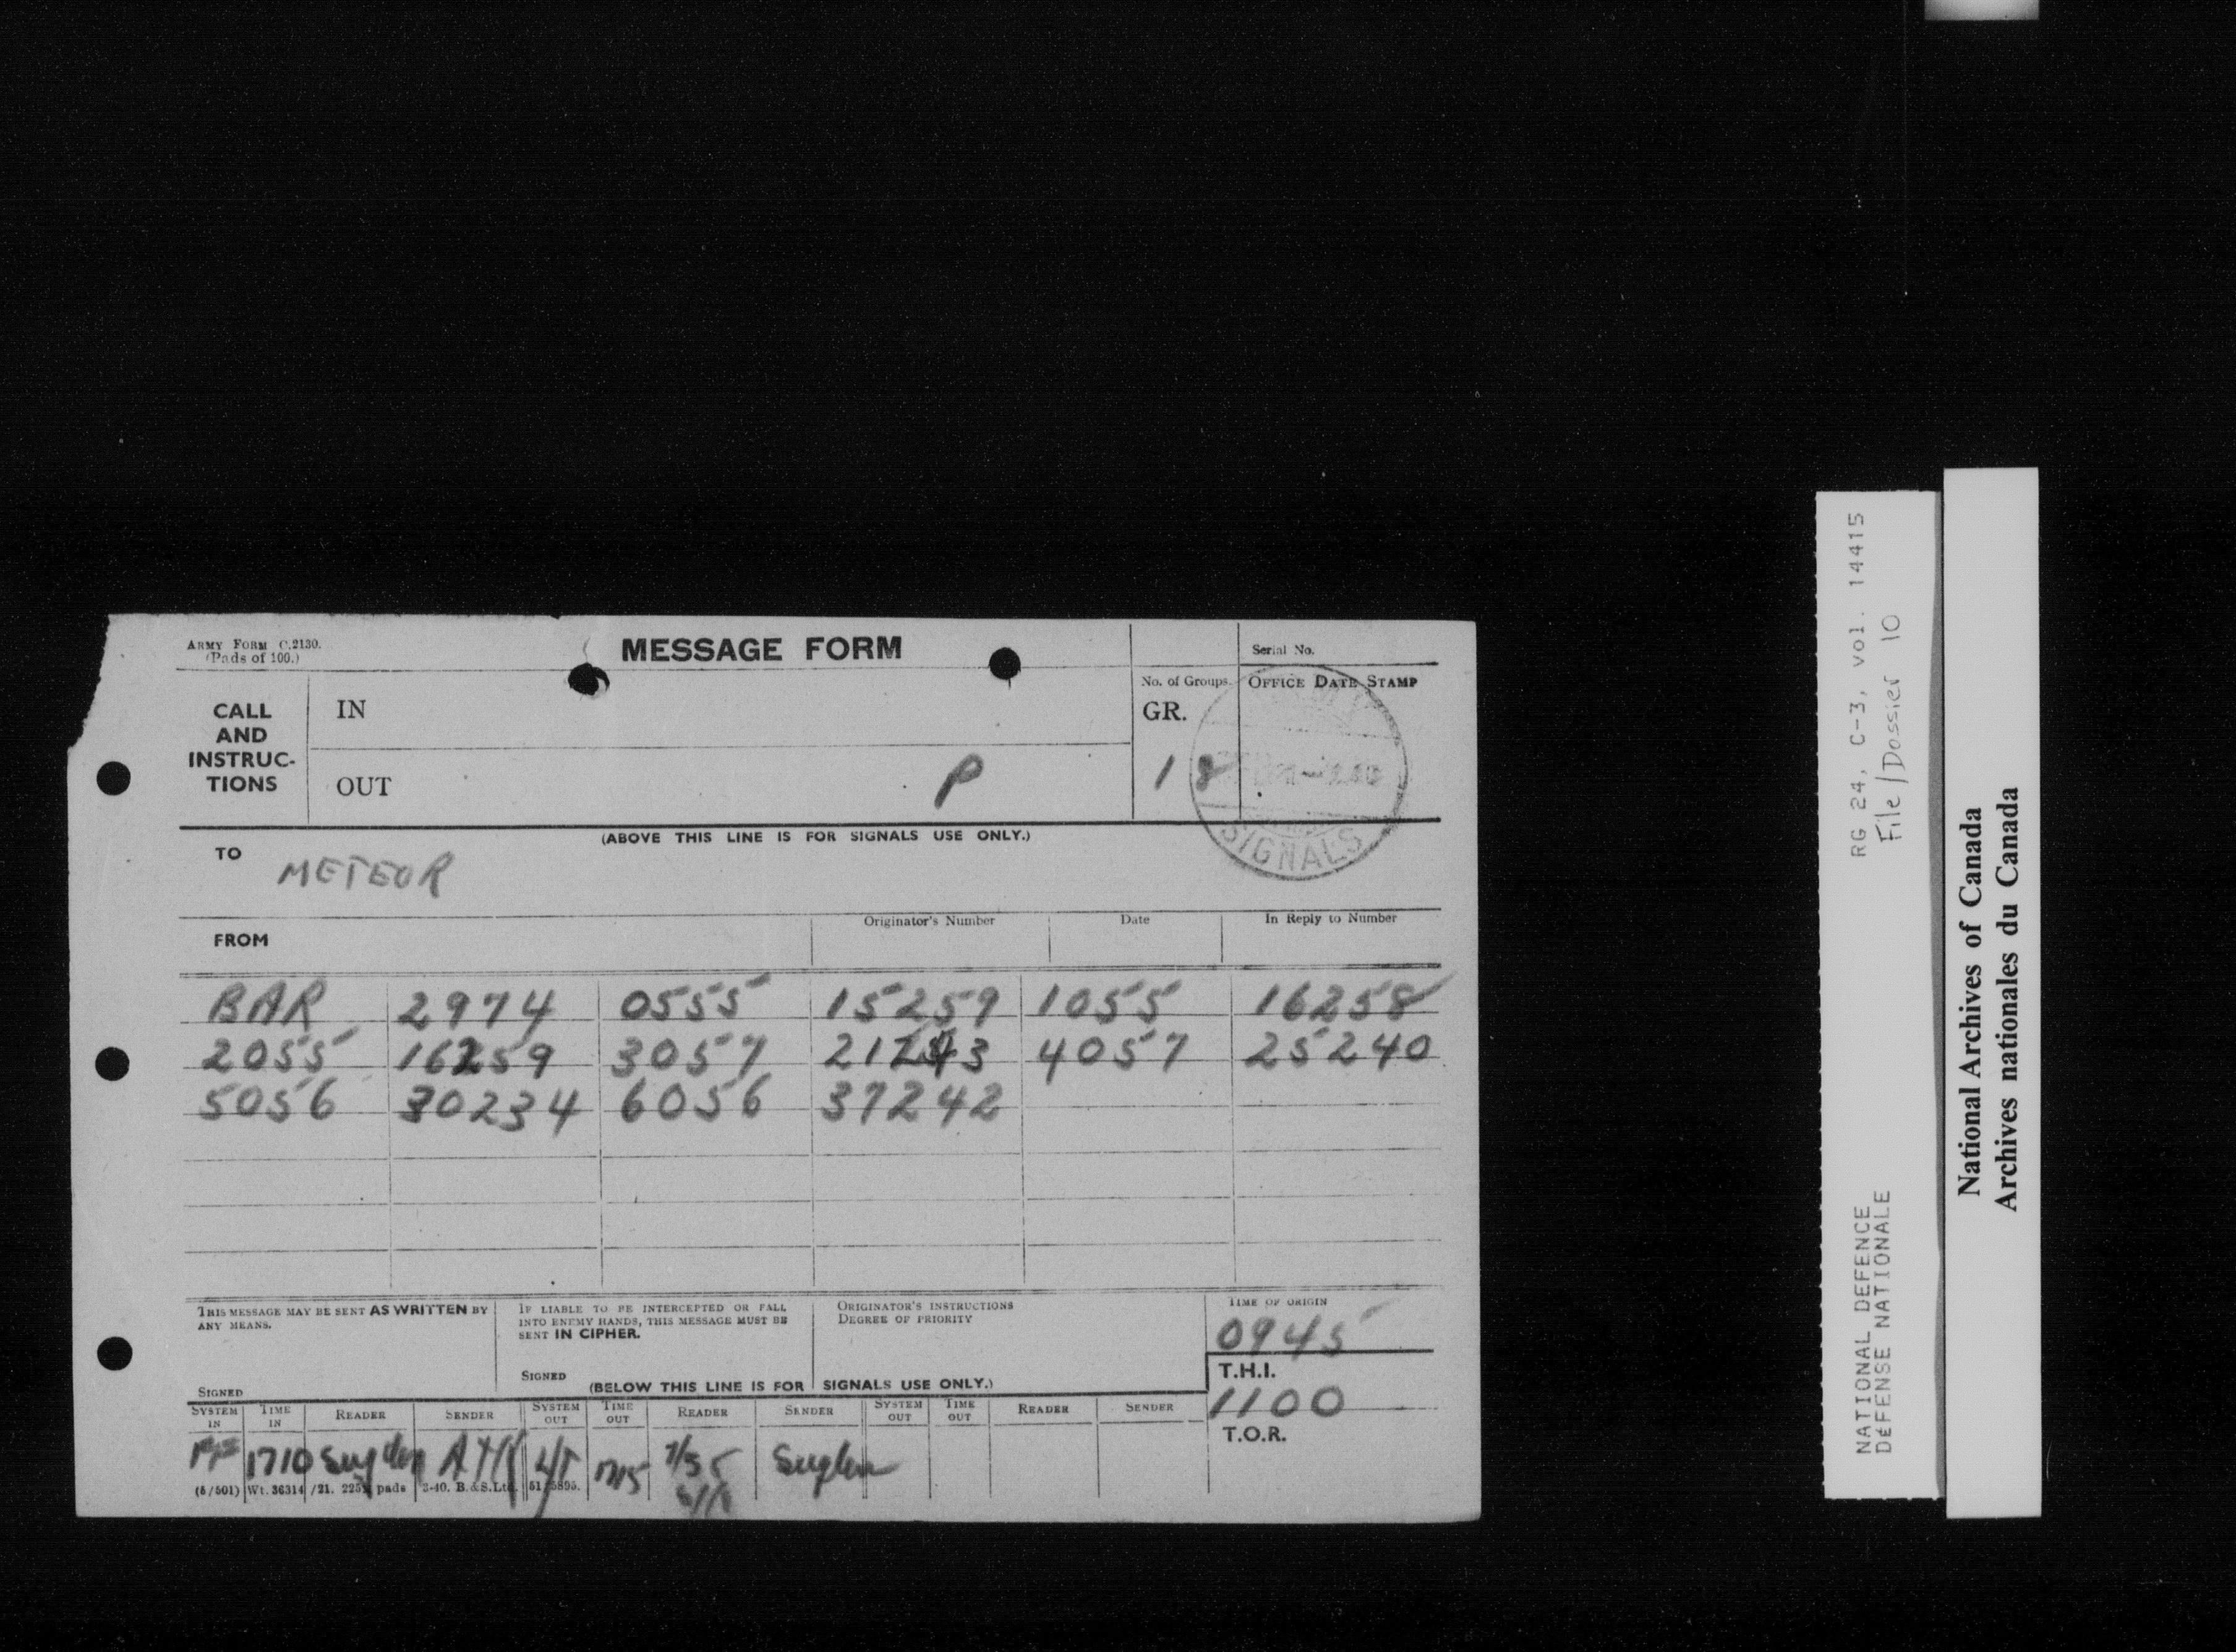 ARMY FORM C.2130.
(Pads of 100.)
MESSAGE FORM
Serial No.
CALL
AND
INSTRUC-
TIONS
IN
OUT
P
No. of Groups.
GR.
18
OFFICE DATE STAMP
SIGNALS
(ABOVE THIS LINE IS FOR SIGNALS USE ONLY.)
TO METEOR
FROM
Originator's Number
Date
In Reply to Number
BAR 2974 0555 15259 1055 16258
2055 16259 3057 21243 4057 25240
5056 30234 6056 37242
THIS MESSAGE MAY BE SENT AS WRITTEN BY
ANY MEANS.
SIGNED
IF LIABLE TO BE INTERCEPTED OR FALL
INTO ENEMY HANDS, THIS MESSAGE MUST BE
SENT IN CIPHER.
SIGNED
ORIGINATOR'S INSTRUCTIONS
DEGREE OF PRIORITY
TIME OF ORIGIN
0945
T.H.I.
1100
T.O.R.
(BELOW THIS LINE IS FOR SIGNALS USE ONLY.)
SYSTEM IN TIME IN READER SENDER SYSTEM OUT TIME OUT READER SENDER SYSTEM OUT TIME OUT READER SENDER
1710 Sugden 1715 Sugden
(5/501) Wt. 36314/21. pads 2-40. B.&S.Ltd. 51/5895.
RG 24, C-3, vol. 14415
File/Dossier 10
NATIONAL DEFENCE
DÉFENSE NATIONALE
National Archives of Canada
Archives nationales du Canada